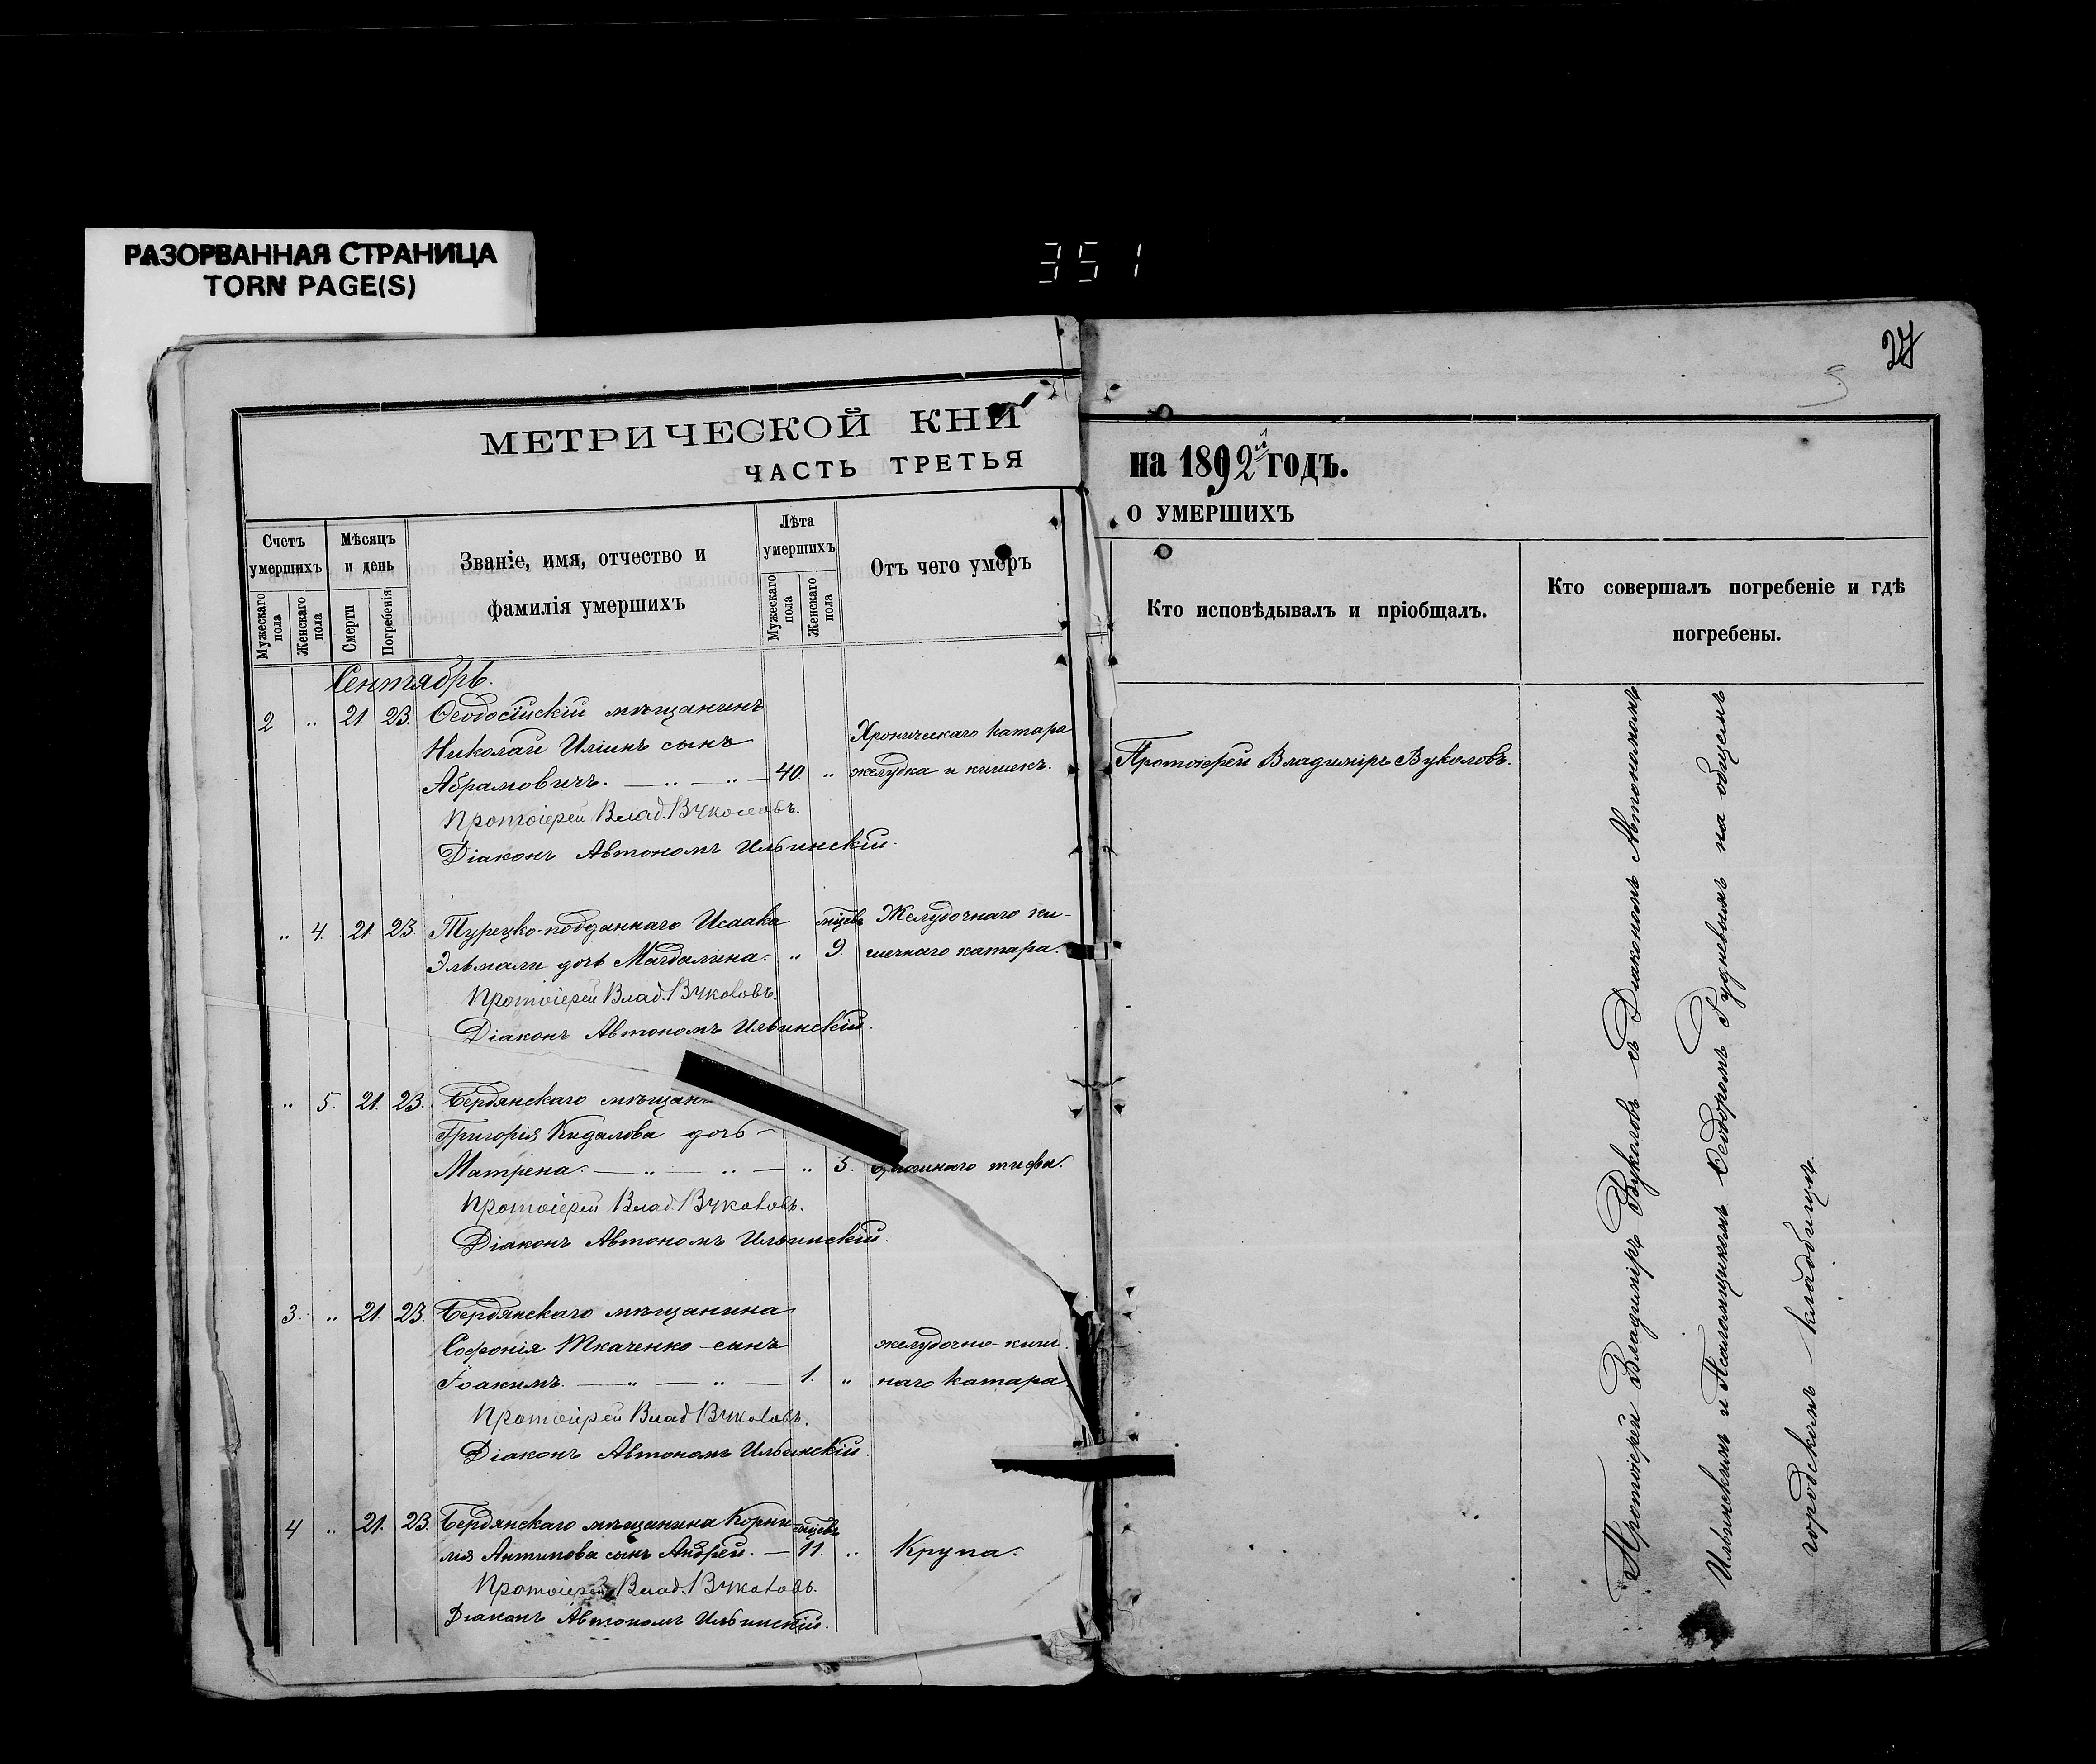 РАЗОРВАННАЯ СТРАНИЦА
TORN PAGE(S)
351
27
МЕТРИЧЕСКОЙ КНИ
ЧАСТЬ ТРЕТЬЯ
на 1892й годъ.
О УМЕРШИХЪ
Счетъ умершихъ
Мужескаго пола
Женскаго пола
Мѣсяцъ и день
Смерти
Погребенія
Званіе, имя, отчество и
фамилія умершихъ
Лѣта умершихъ
Мужескаго пола
Женскаго пола
Отъ чего умеръ
Кто исповѣдывалъ и пріобщалъ.
Кто совершалъ погребеніе и гдѣ
погребены.
Сентябрь.
2 " 21 23. Ѳеодосійскій мѣщанинъ
Николай Иліинъ сынъ Хроническаго катара
Абрамовичъ. — " — " — 40. " желудка и кишекъ. Протоіерей Владиміръ Вуколовъ.
Протоіерей Влад. Вуколовъ.
Діаконъ Автономъ Ильинскій.
" 4. 21. 23. Турецко-подданнаго Исаака мѣсяцевъ Желудочнаго ки-
Эльмали дочь Магдалина. " 9. шечнаго катара.
Протоіерей Влад. Вуколовъ.
Діаконъ Автономъ Ильинскій.
" 5. 21. 23. Бердянскаго
Григорія Кидалова дочь —
Матрена. — " — " — " 5. тифа.
Протоіерей Влад. Вуколовъ.
Діаконъ Автономъ Ильинскій.
3. " 21. 23. Бердянскаго мѣщанина
Софонія Ткаченко сынъ желудочно-киш
Іоакимъ. — " — " — 1. " наго катара.
Протоіерей Влад. Вуколовъ.
Діаконъ Автономъ Ильинскій.
4 " 21. 23. Бердянскаго мѣщанина Корни-
лія Антипова сынъ Андрей. — 11. " Крупа.
Протоіерей Влад. Вуколовъ.
Діаконъ Автономъ Ильинскій.
Протоіерей Владиміръ Вуколовъ съ Діакономъ Автономомъ
Ильинскимъ и Псаломщикомъ Ѳеодоромъ Рудневымъ на общемъ
городскомъ кладбищѣ.